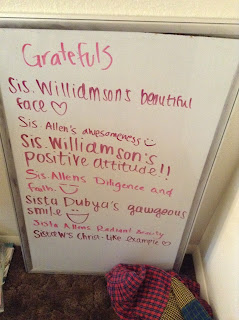 Gratefuls
Sis. Williamson's beautiful
face ♡
Sis Allen's awesomeness
Sis. Williamson's
positive attitude!!
Sis. Allens Diligence and
Faith.
Sista Dubya's gawgeous
smile
Sista Allens Radiant
Sista W's Christ-like Example ♡